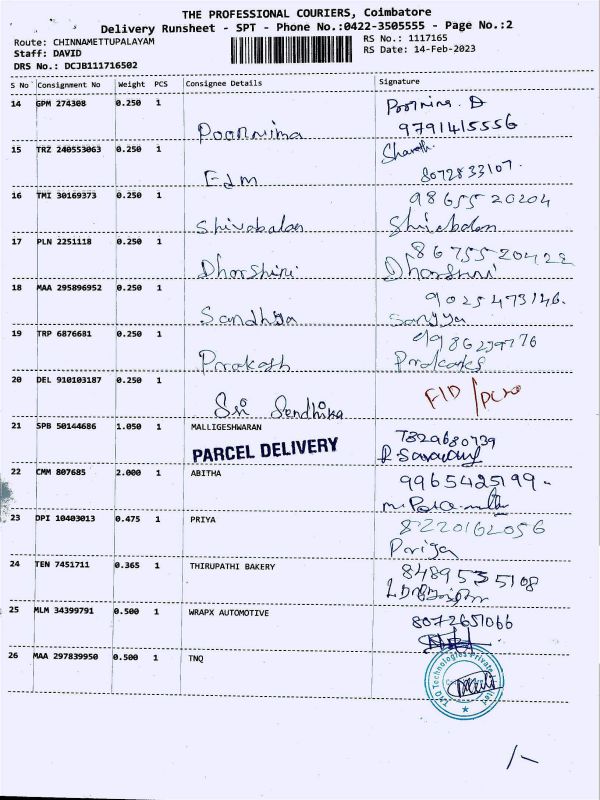 THE PROFESSIONAL COURIERS, Coimbatore
Delivery Runsheet - SPT - Phone No.:0422-3505555 - Page No.:2
Route: CHINNAMETTUPALAYAM
RS No.: 1117165
Staff: DAVID
RS Date: 14-Feb-2023
DRS No.: DCJB111716502
S No Consignment No Weight PCS Consignee Details Signature
14 GPM 274308 0.250 1 Poornima Poornima. D
9791415556
15 TRZ 240553063 0.250 1 Sharath.
8072833107.
16 TMI 30169373 0.250 1 Shivabalan 98655 20204
Shivabalan
17 PLN 2251118 0.250 1 Dharshini 86755 20422
Dharshini
18 MAA 295896952 0.250 1 Sandhya 9025473146.
19 TRP 6876681 0.250 1 Prakash
20 DEL 910103187 0.250 1 Sri Sendhika
21 SPB 50144686 1.050 1 MALLIGESHWARAN 7829680739
PARCEL DELIVERY
22 CMM 807685 2.000 1 ABITHA 9965425199-
23 DPI 10403013 0.475 1 PRIYA 8220162056
Pariya
24 TEN 7451711 0.365 1 THIRUPATHI BAKERY 8489535108
25 MLM 34399791 0.500 1 WRAPX AUTOMOTIVE 8072651066
26 MAA 297839950 0.500 1 TNQ
TNQ Technologies Private Limited
1/-